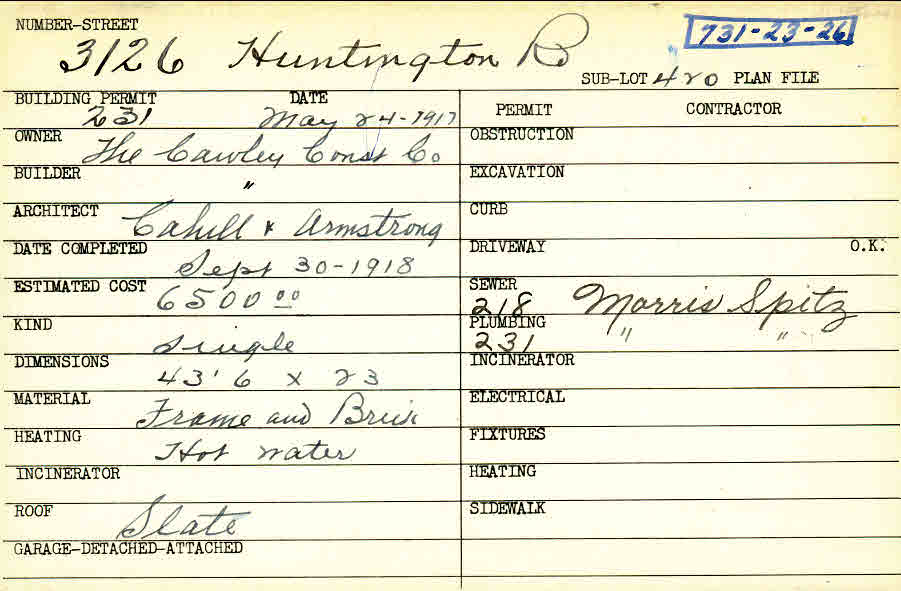 NUMBER-STREET
3126 Huntington Rd
731-23-26
SUB-LOT 420 PLAN FILE
BUILDING PERMIT DATE
231 May 24-1917
OWNER The Cawley Const Co
BUILDER "
ARCHITECT Cahill & Armstrong
DATE COMPLETED
Sept 30-1918
ESTIMATED COST
6500 00
KIND
Single
DIMENSIONS
43' 6 x 23
MATERIAL Frame and Brick
HEATING
Hot water
INCINERATOR
ROOF Slate
GARAGE-DETACHED-ATTACHED
PERMIT CONTRACTOR
OBSTRUCTION
EXCAVATION
CURB
DRIVEWAY O.K.
SEWER
218 Morris Spitz
PLUMBING
231 " "
INCINERATOR
ELECTRICAL
FIXTURES
HEATING
SIDEWALK